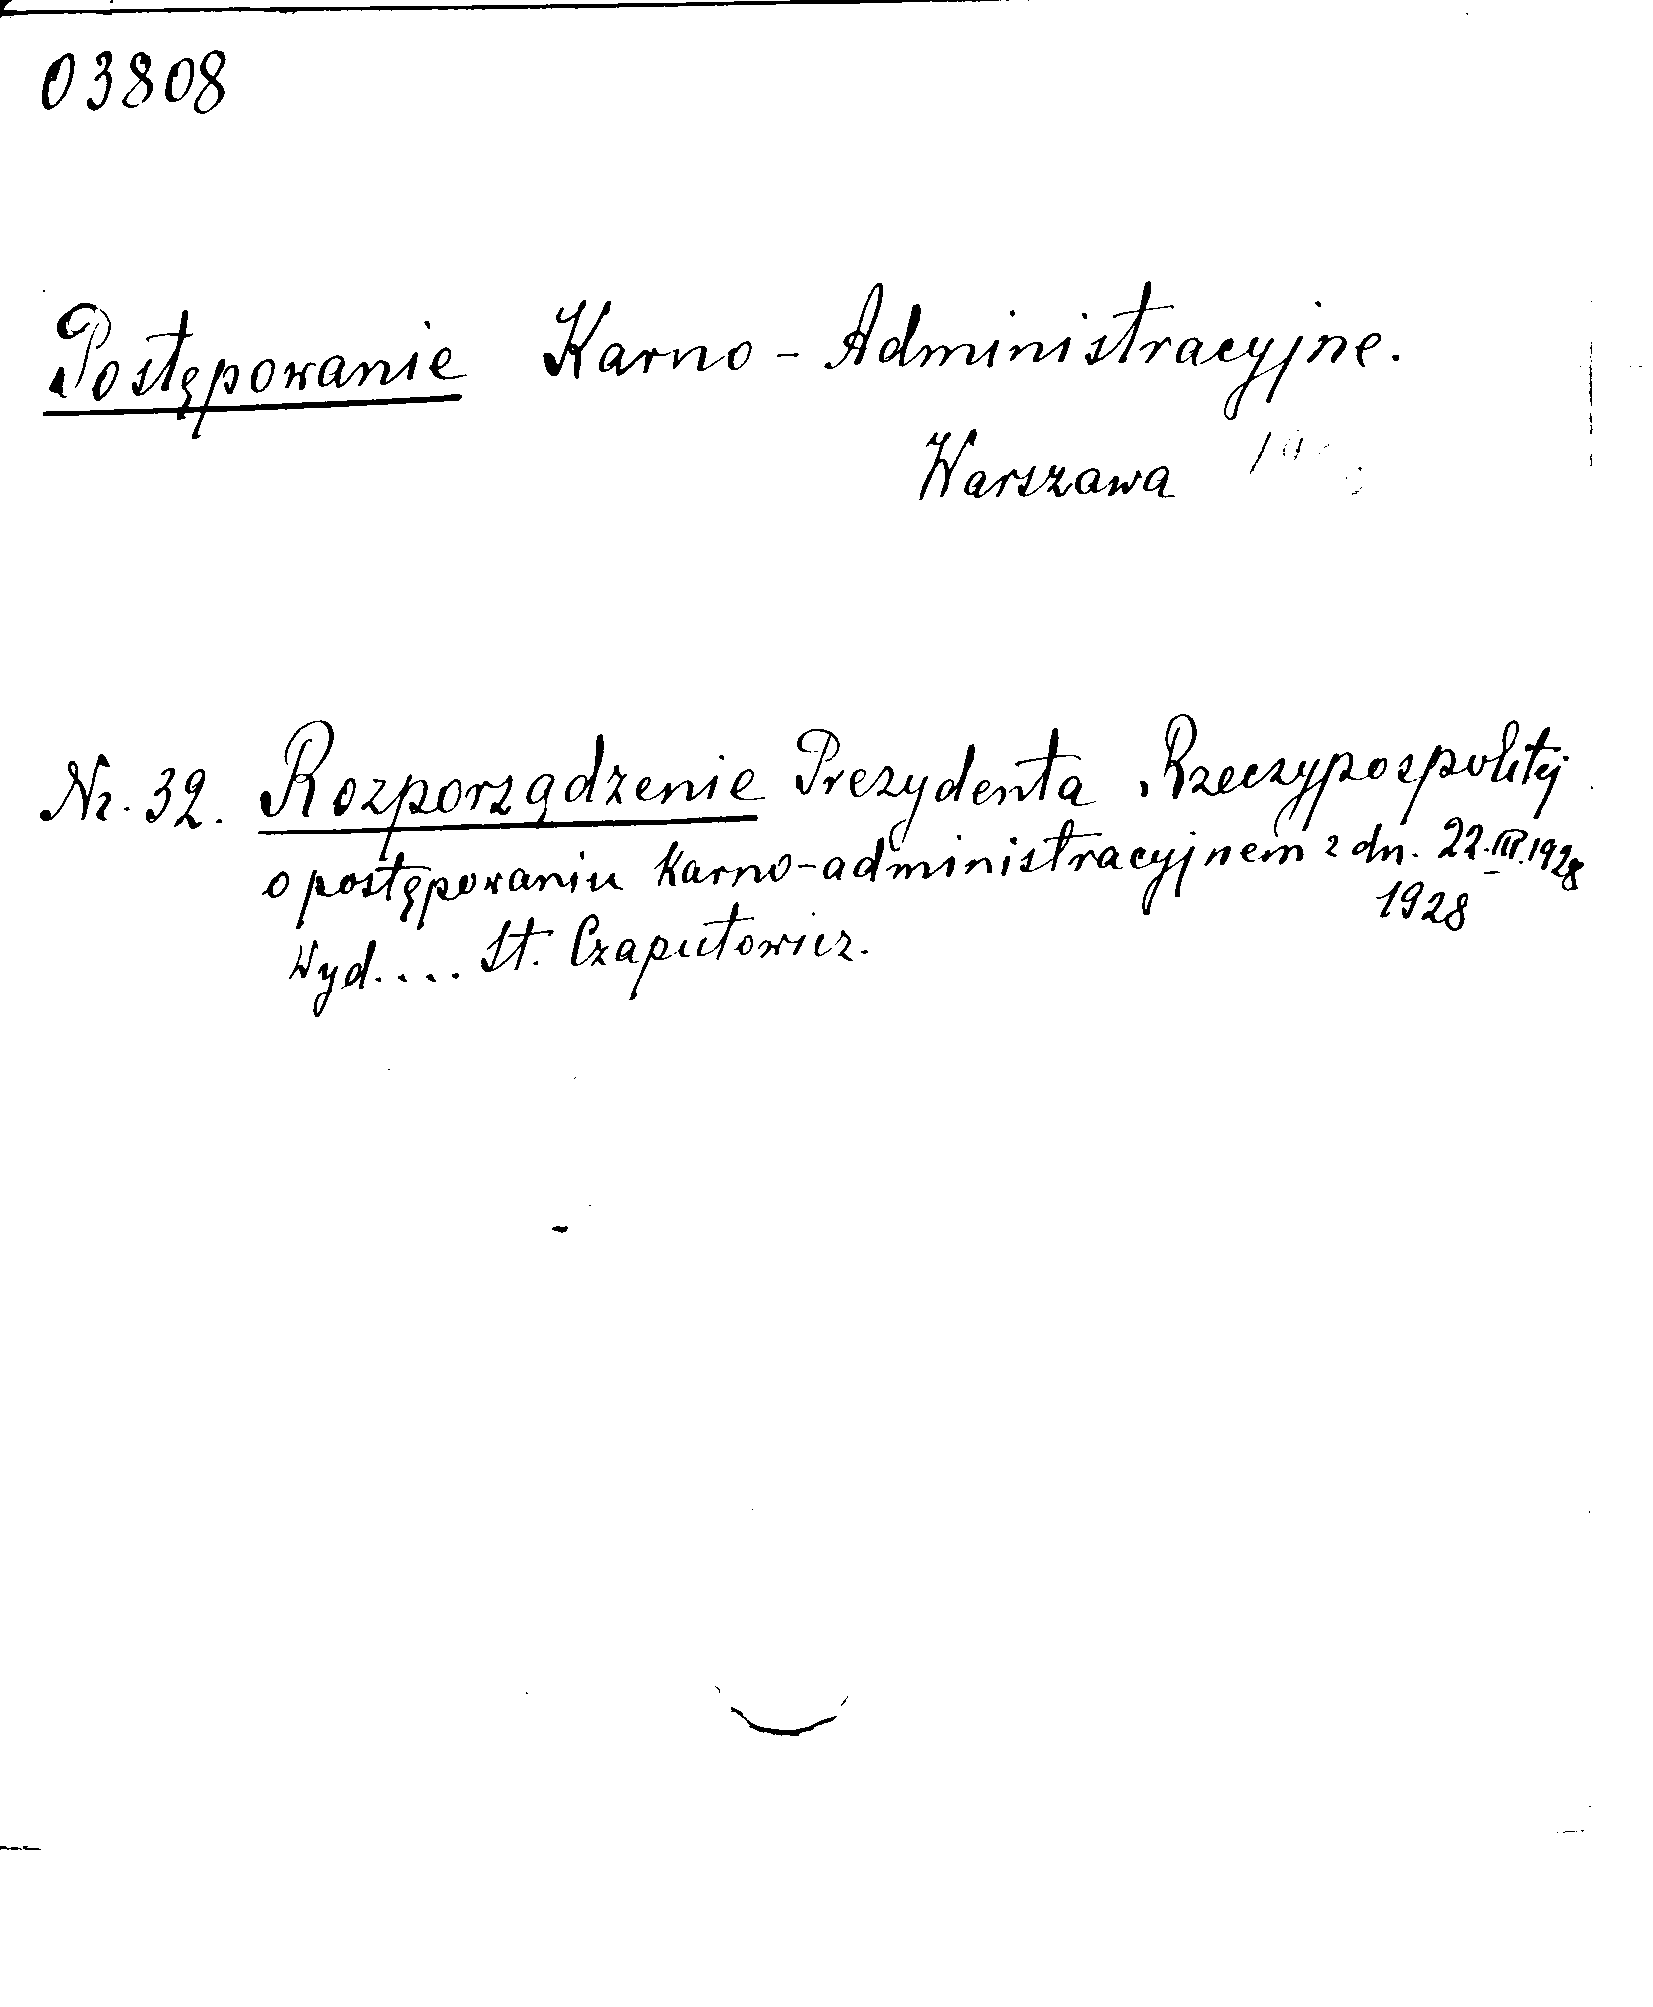 03808
Postępowanie Karno-Administracyjne.
Warszawa
Nr. 32. Rozporządzenie Prezydenta Rzeczypospolitej
o postępowaniu karno-administracyjnem z dn. 22.III.1928
1928
Wyd.... St. Czaputowicz.